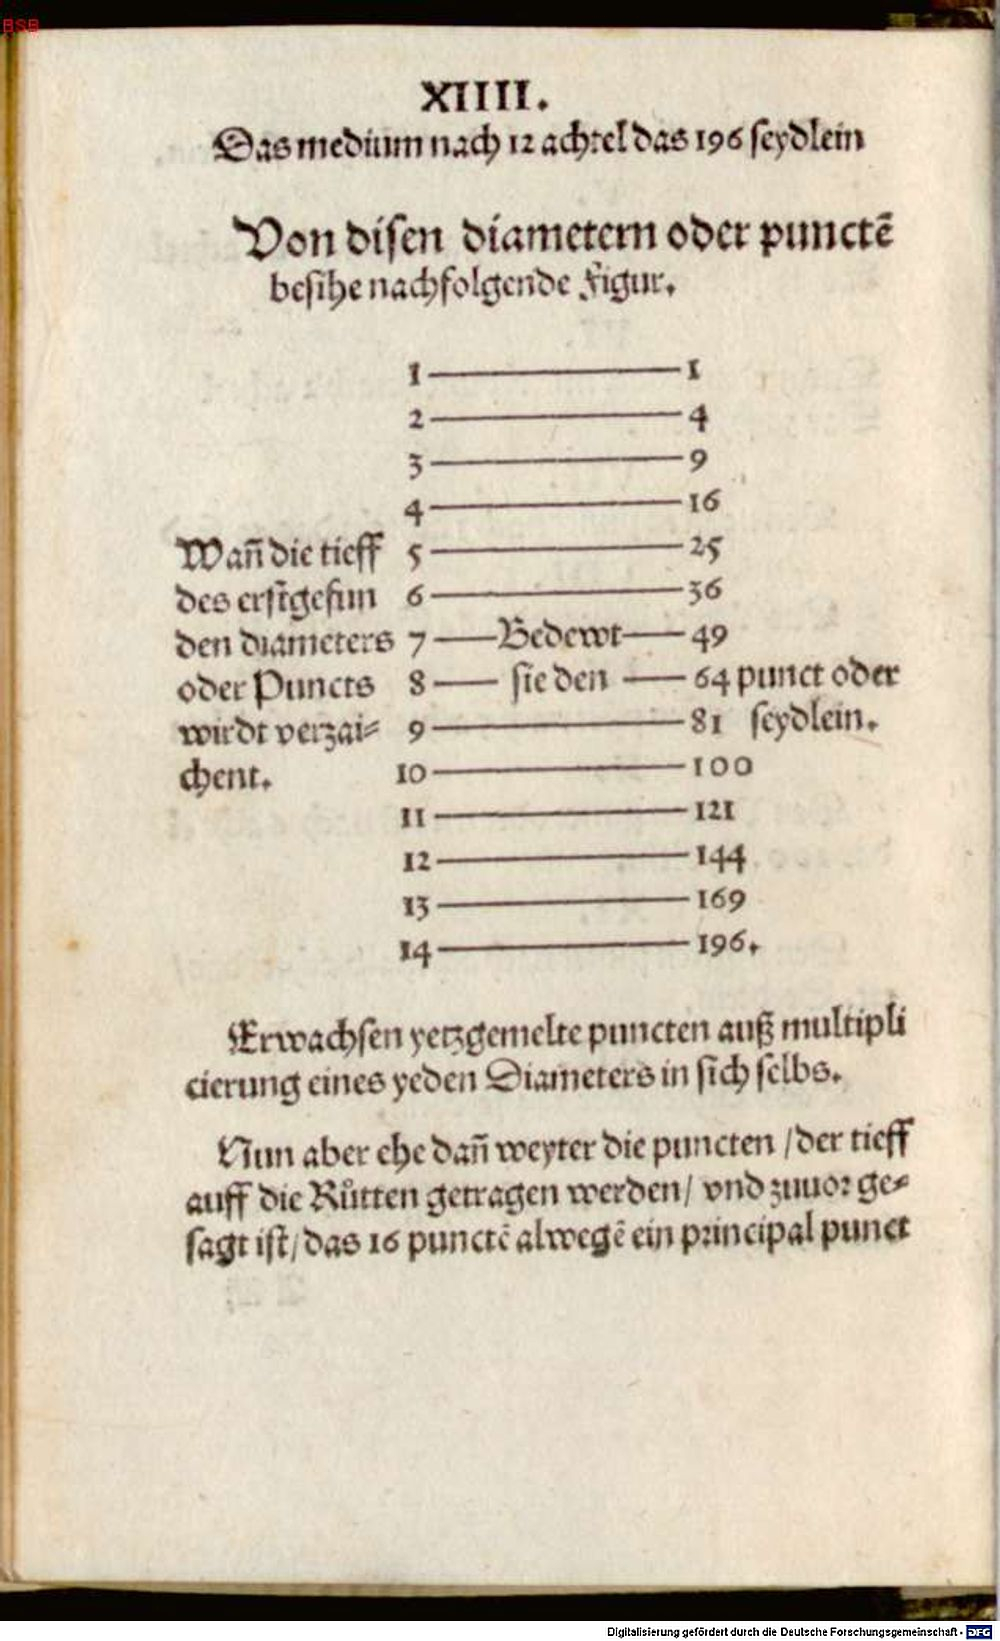 BSB
XIIII.
Das medium nach 12 achtel das 196 seydlein
Von disen diametern oder punctē
besihe nachfolgende Figur.
1 — 1
2 — 4
3 — 9
4 — 16
Wañ die tieff 5 — 25
des erstgefun 6 — 36
den diameters 7 — Bedewt — 49
oder Puncts 8 — sie den — 64 punct oder
wirdt verzai= 9 — 81 seydlein.
chent. 10 — 100
11 — 121
12 — 144
13 — 169
14 — 196.
Erwachsen yetzgemelte puncten auß multipli
cierung eines yeden Diameters in sich selbs.
Nun aber ehe dañ weyter die puncten / der tieff
auff die Růtten getragen werden / vnd zuuor ge=
sagt ist / das 16 punctē alwegē ein principal punct
Digitalisierung gefördert durch die Deutsche Forschungsgemeinschaft - DFG